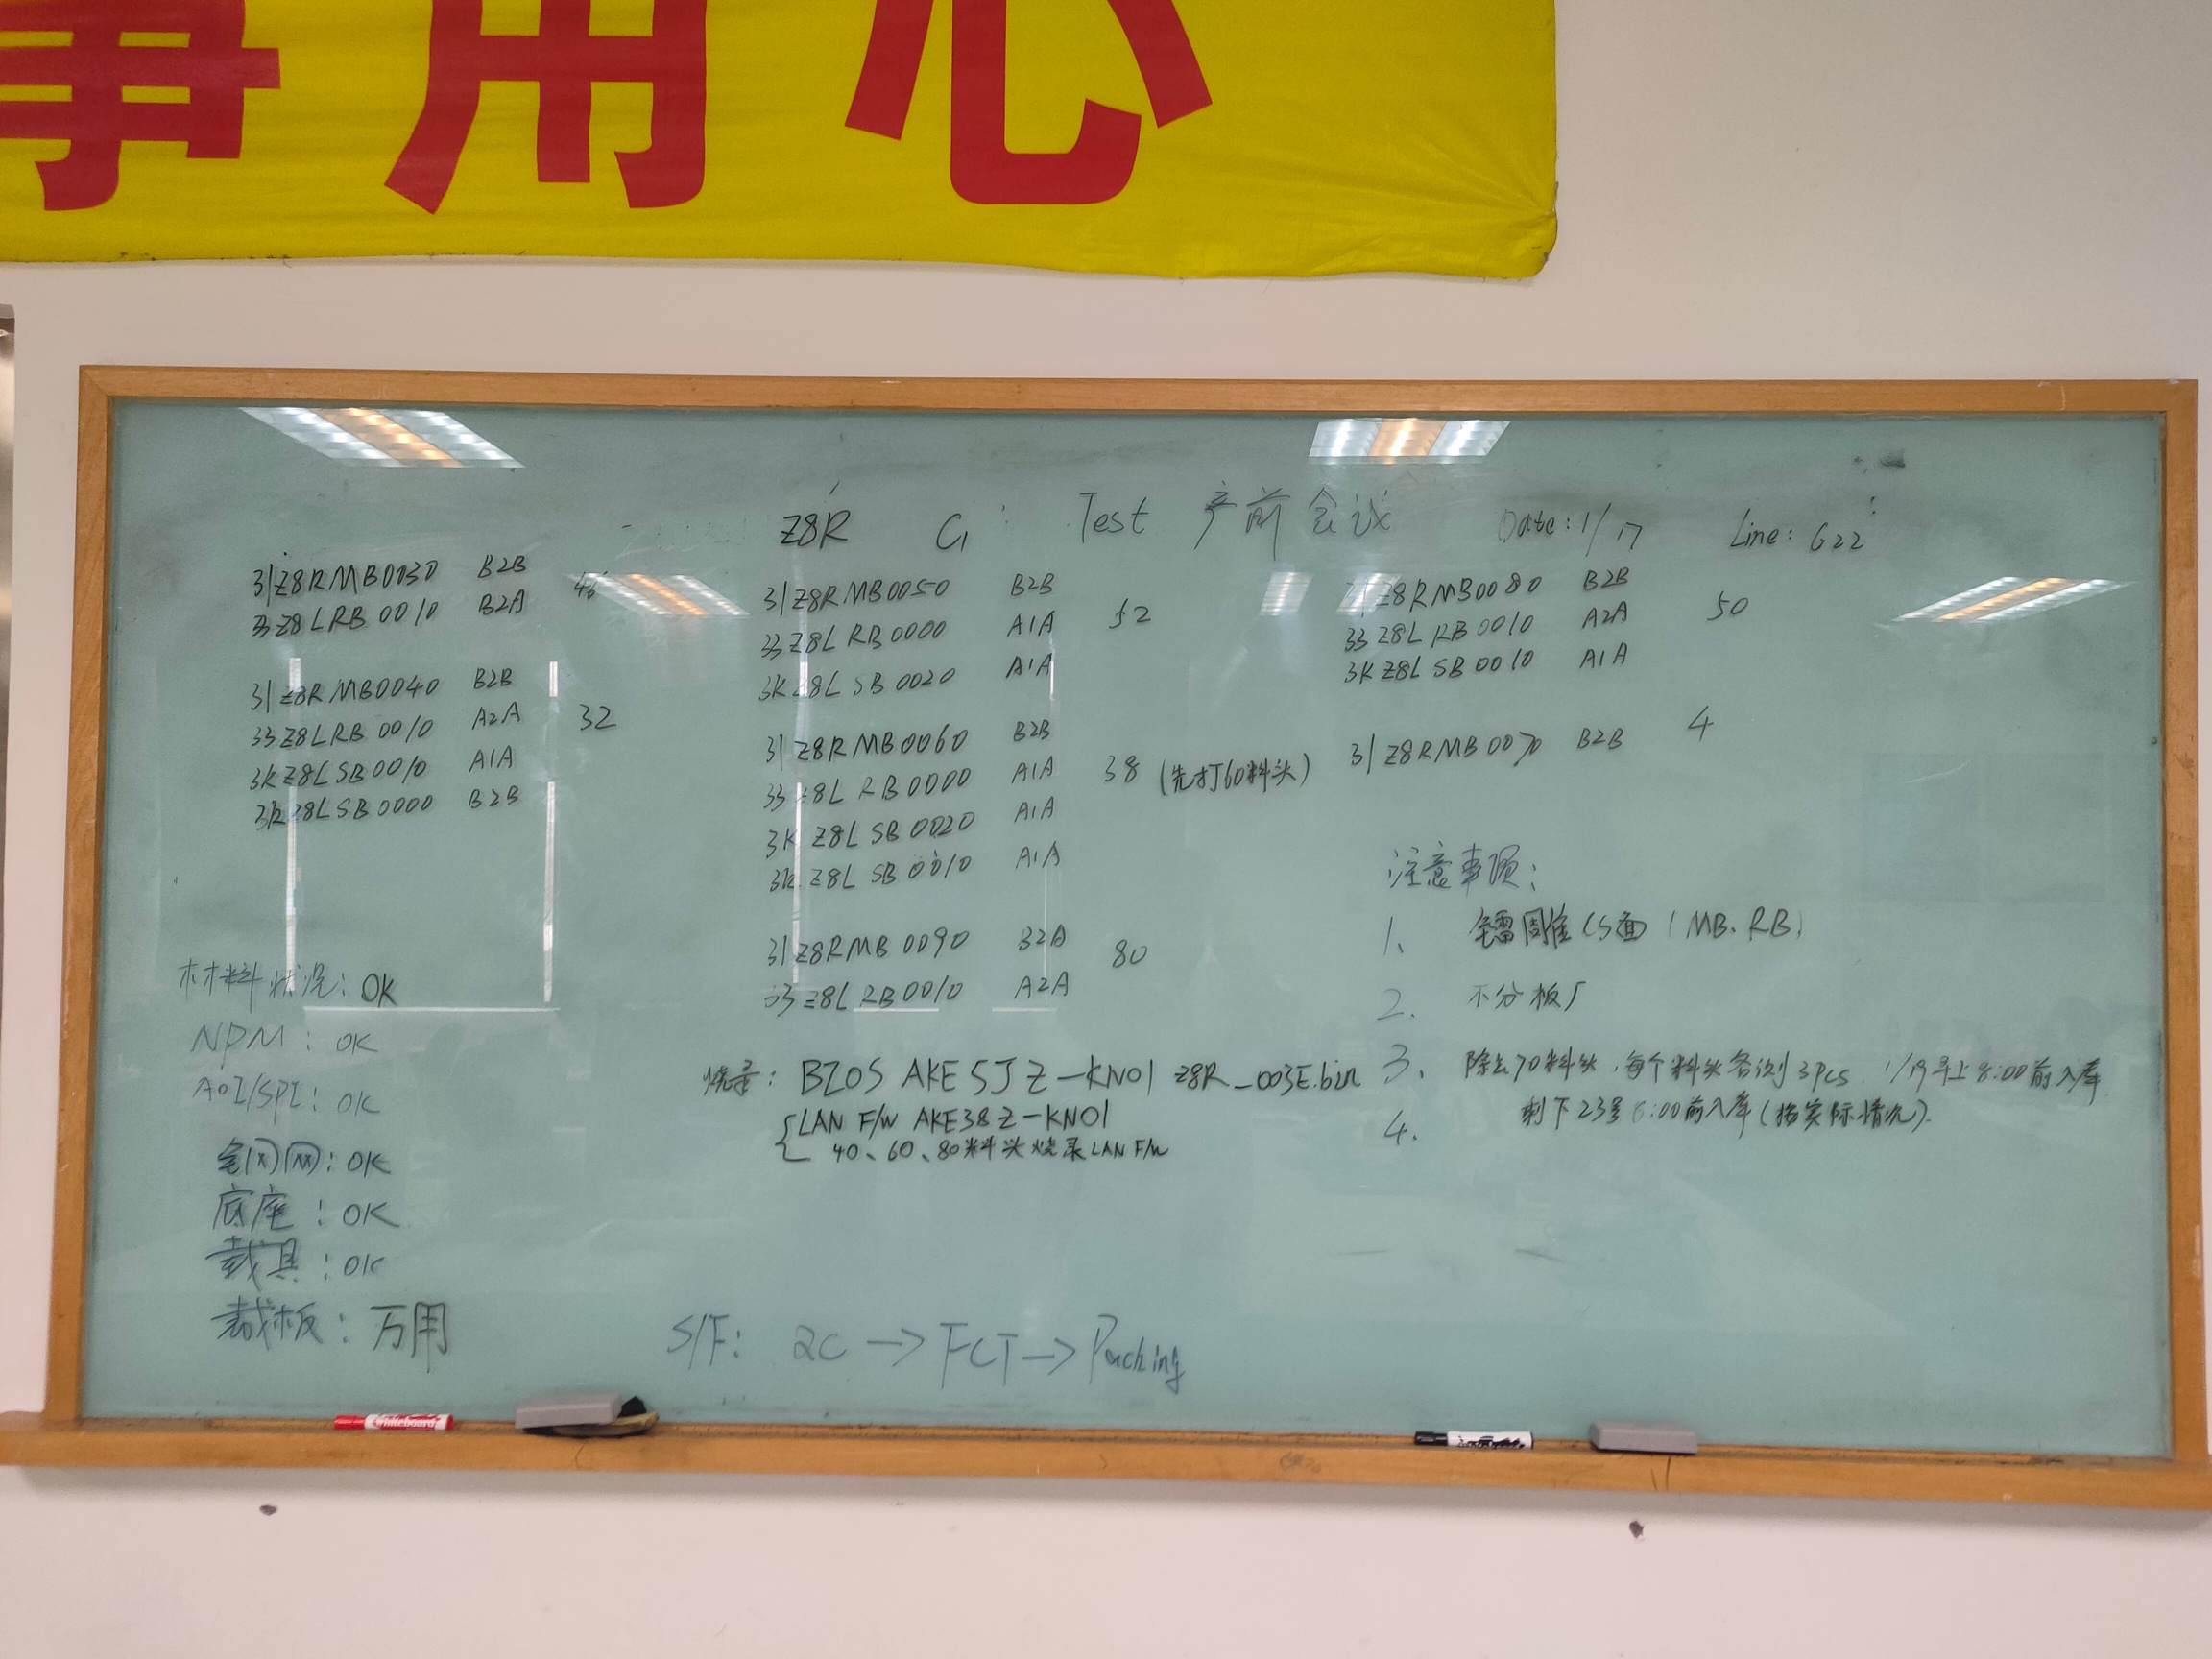 事用心
Z8R C1 Test 产前会议 Date: 1/17 Line: G22
31Z8RMB0030 B2B
33Z8LRB0010 B2A
31Z8RMB0040 B2B
33Z8LRB0010 A2A 32
3KZ8LSB0010 A1A
3KZ8LSB0000 B2B
材料状况: OK
NPM: OK
AOI/SPI: OK
钢网: OK
底座: OK
载具: OK
裁板: 万用
31Z8RMB0050 B2B
33Z8LRB0000 A1A 52
3KZ8LSB0020 A1A
31Z8RMB0060 B2B
33Z8LRB0000 A1A 38 (先打60料头)
3KZ8LSB0020 A1A
3KZ8LSB0010 A1A
31Z8RMB0090 B2A 80
33Z8LRB0010 A2A
烧录: BZOS AKE5JZ-KN01 Z8R_003E.bin
LAN F/W AKE38Z-KN01
40、60、80料头烧录LAN F/W
S/F: QC → FCT → Packing
31Z8RMB0080 B2B
33Z8LRB0010 A2A 50
3KZ8LSB0010 A1A
31Z8RMB0070 B2B 4
注意事项:
1、 镭周 CS面 (MB、RB)
2. 不分板厂
3、 除去70料头,每个料头各 3pcs 1/19早上8:00前入库
剩下23号 :00前入库(按实际情况).
4.
whiteboard